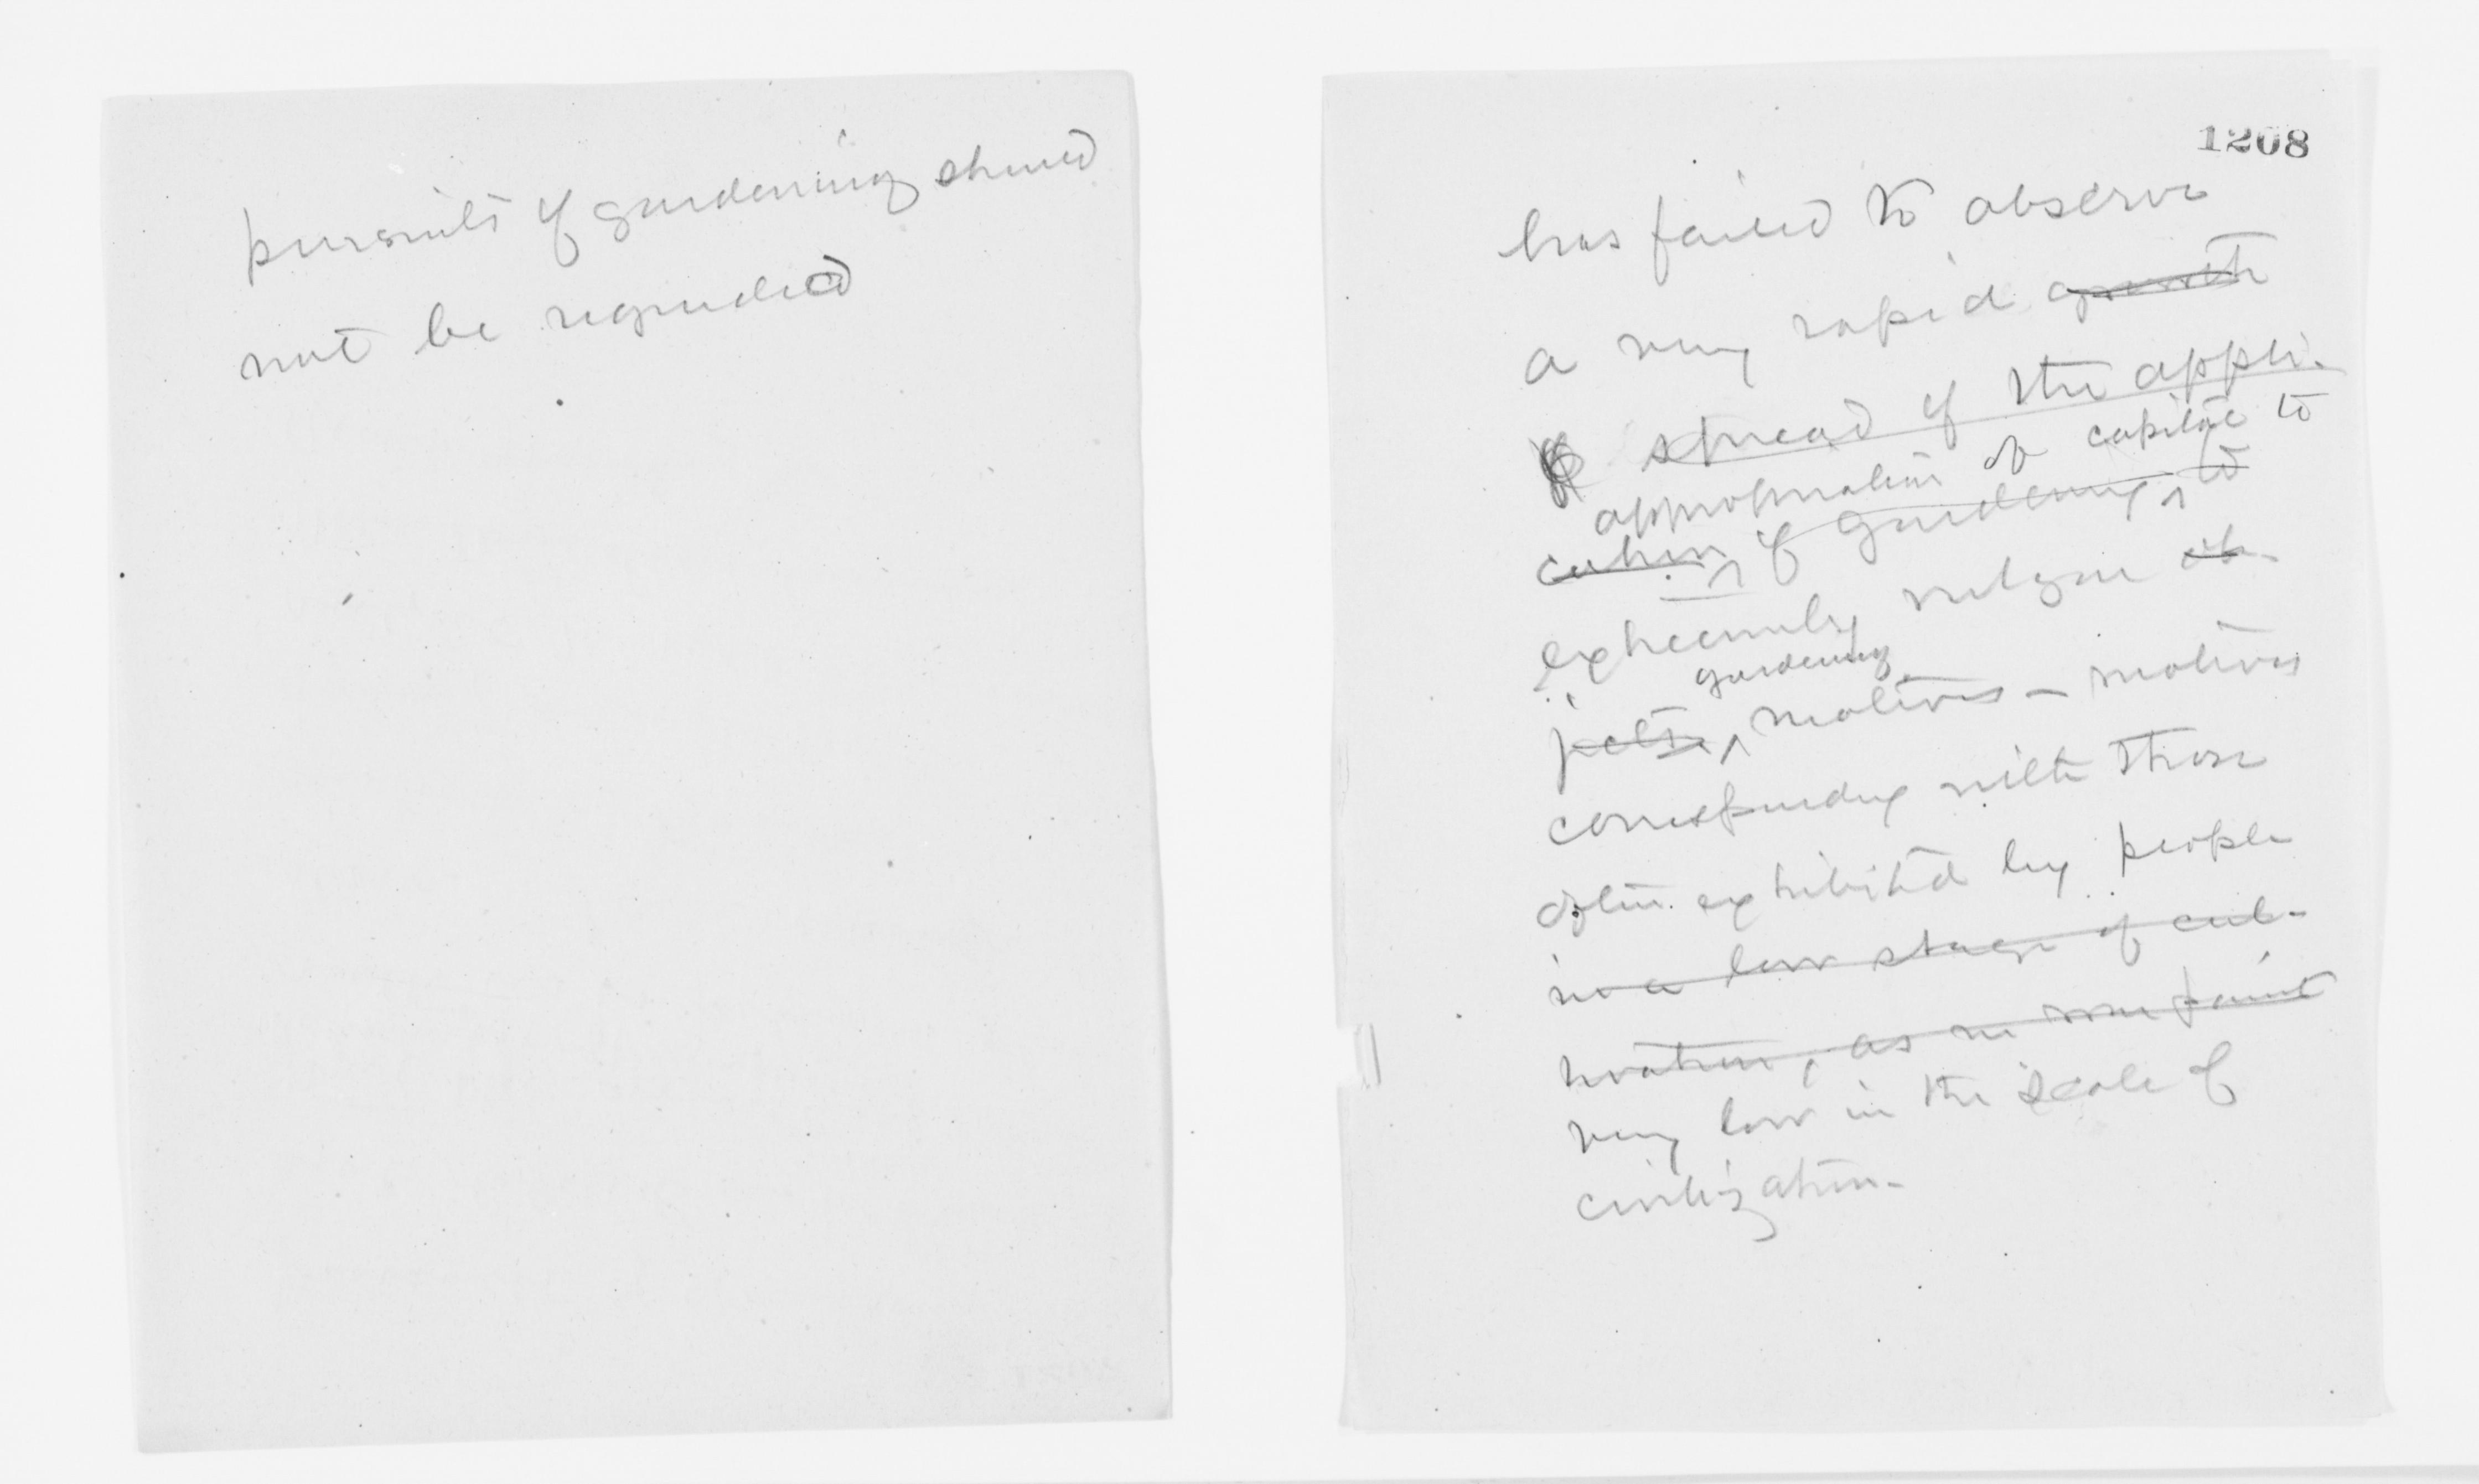 pursuits of gardening should
not be regarded
1208
has failed to observe
a very rapid growth
spread of the appli-
appropriation of capital to
cation of gardening to
extremely vulgar ob-
gardening
jects, motives - motives
corresponding with those
often exhibited by people
in a low stage of cul-
tivation, as in some faint
very low in the scale of
civilization-